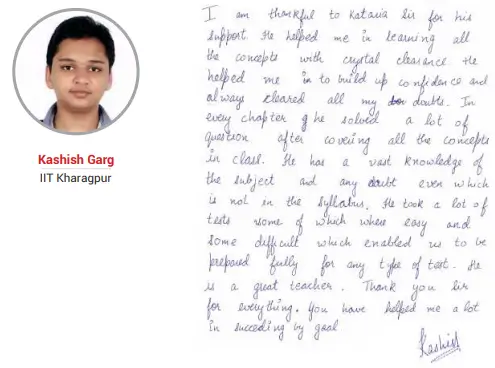 Kashish Garg
IIT Kharagpur
I am thankful to Kataria Sir for his
support. He helped me in learning all
the concepts with crystal clearance. He
helped me in to build up confidence and
always cleared all my doubts. In
every chapter he solved a lot of
question after covering all the concepts
in class. He has a vast knowledge of
the subject and any doubt even which
is not in the syllabus. He took a lot of
tests some of which where easy and
some difficult which enabled us to be
prepared fully for any type of test. He
is a great teacher. Thank you Sir
for everything. You have helped me a lot
in succeding by goal
Kashish